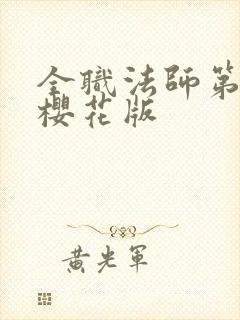 全職法師第
櫻花版
黃光軍